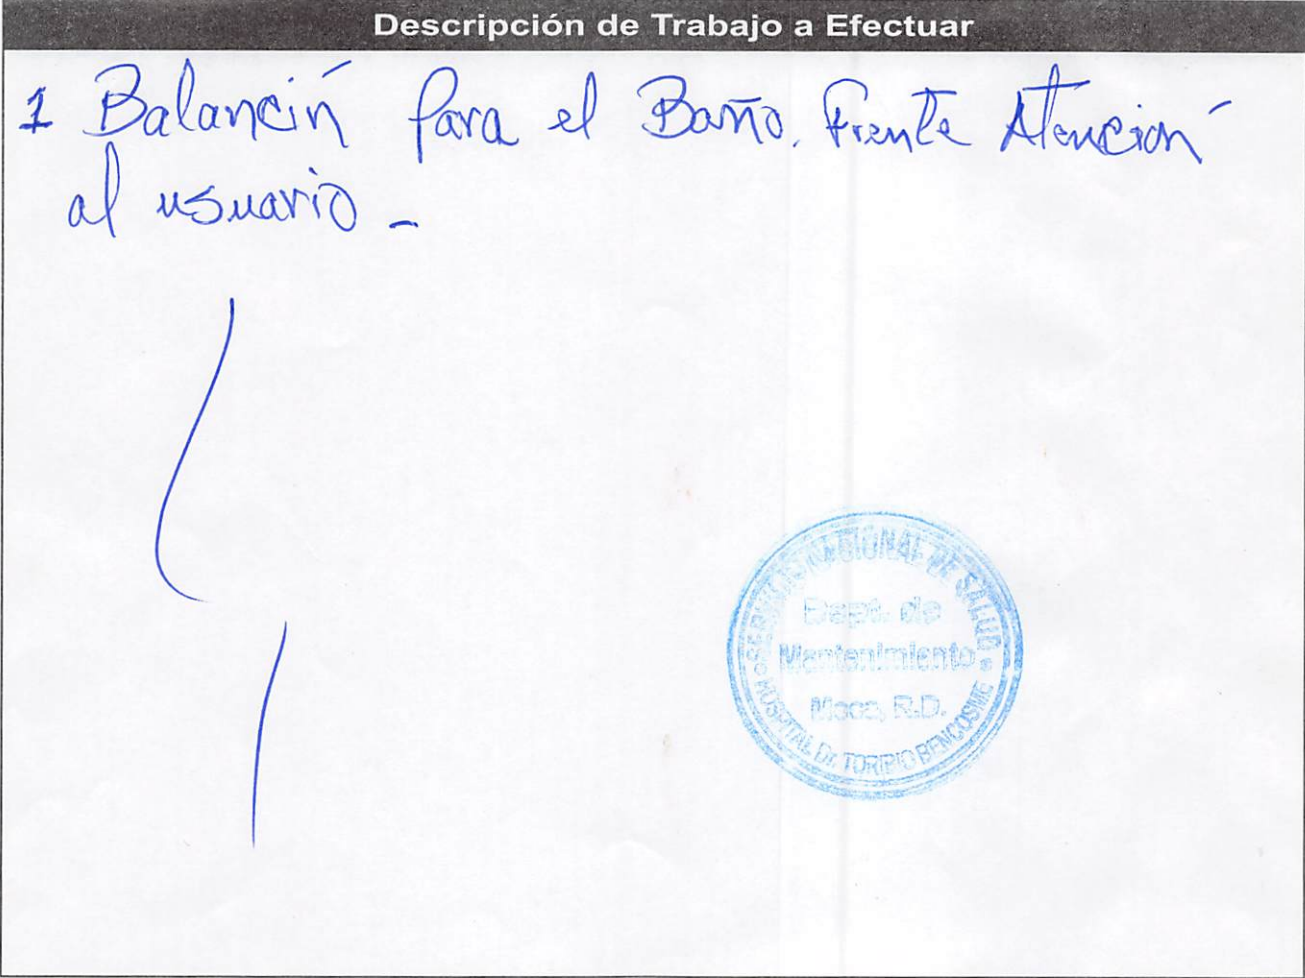 Descripción de Trabajo a Efectuar
1 Balancín para el Baño. Frente Atención
al usuario -
SERVICIO NACIONAL DE SALUD
Dept. de
Mantenimiento
Moca, R.D.
HOSPITAL Dr. TORIPIO BENCOSME